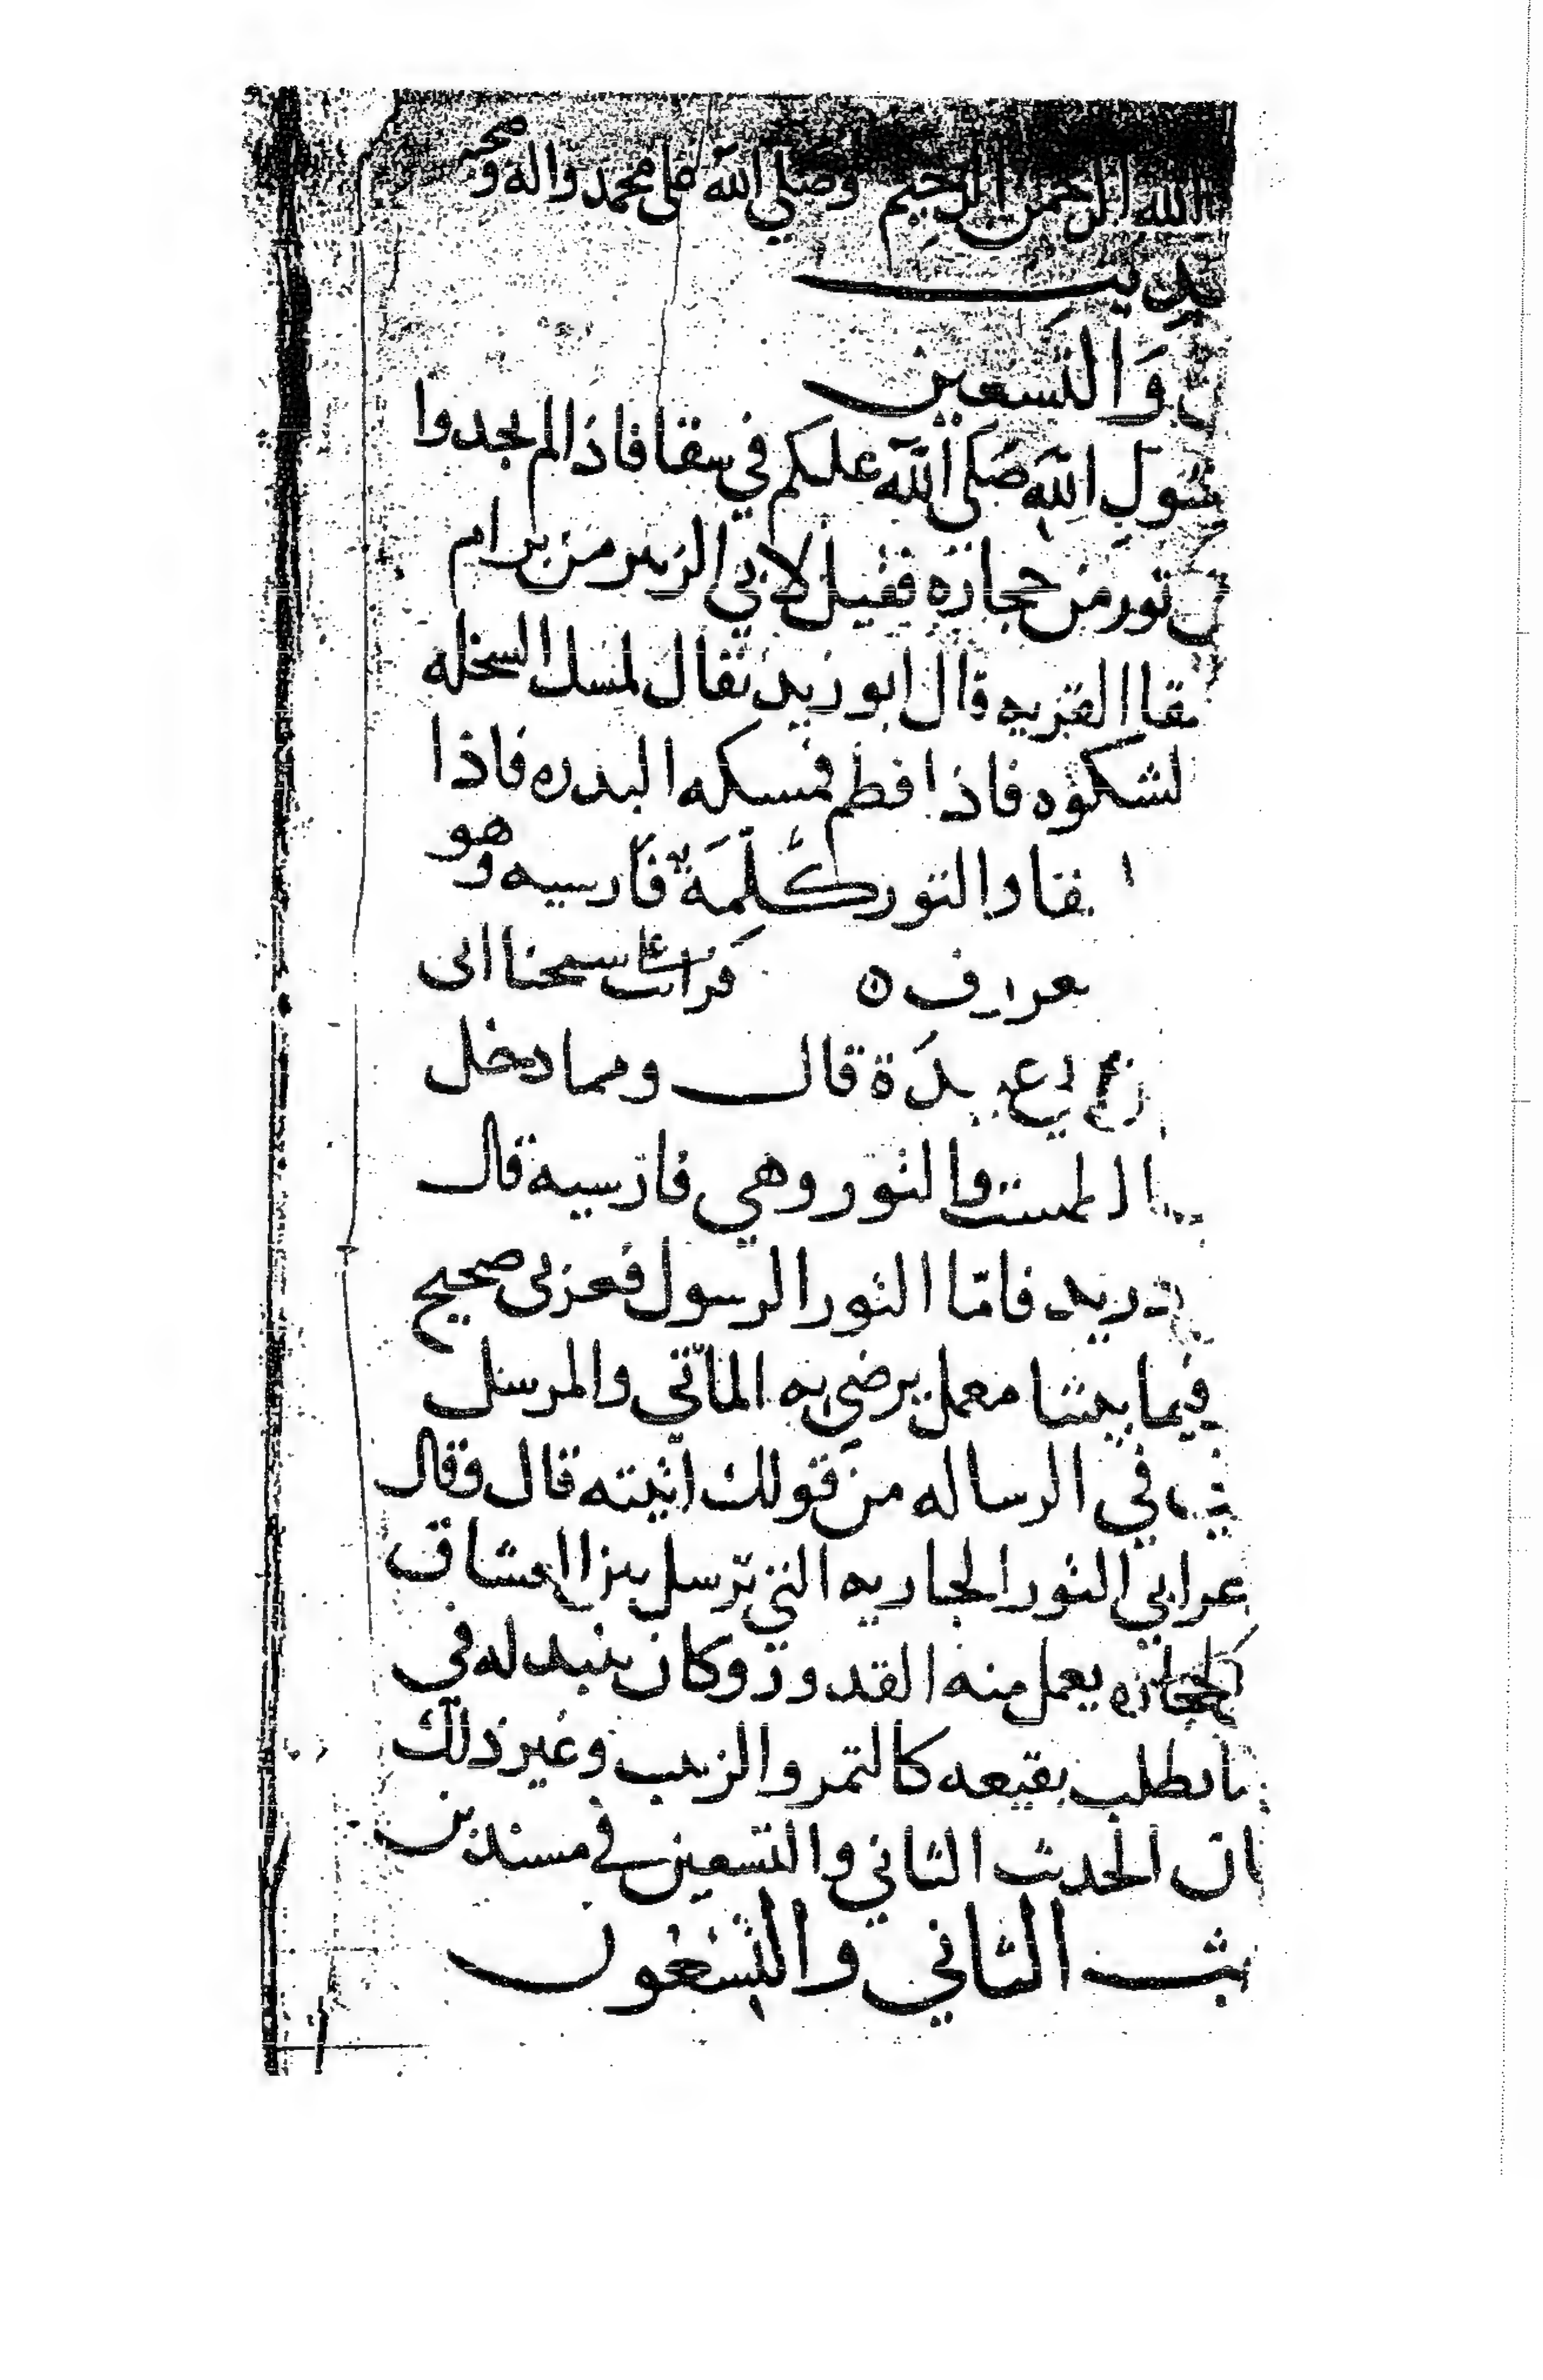 الله الرحمن الرحيم وصلي الله على محمد واله وصحبه
والتسعين
سول الله صلى الله عليكم في سقا فاذا لم يجدوا
تور من حجازه فقيل لابي الزبير من برام
سقا القربه قال ابو زيد يقال لمسك السخله
لشكوه فاذا فطم فمسكه البدره فاذا
سقا والتور كلمة فارسيه وهو
قرات علي سحنا ابى
بيدة قال ومما دخل
الطست والتور وهي فارسيه قال
دريد فامّا التور الرسول فعربى صحيح
فيما بيننا معمل يرضى به المأتي والمرسل
في الرساله من قولك اتيته قال وقال
عرابي التور الجاريه التي ترسل بين العشاق
كالحجازه يعمل منه القدور وكان ينبد له في
نطلب نقيعه كالتمر والزبيب وغير ذلك
الحديث الثاني والتسعين في مسند بن
يث الثاني والتسعون